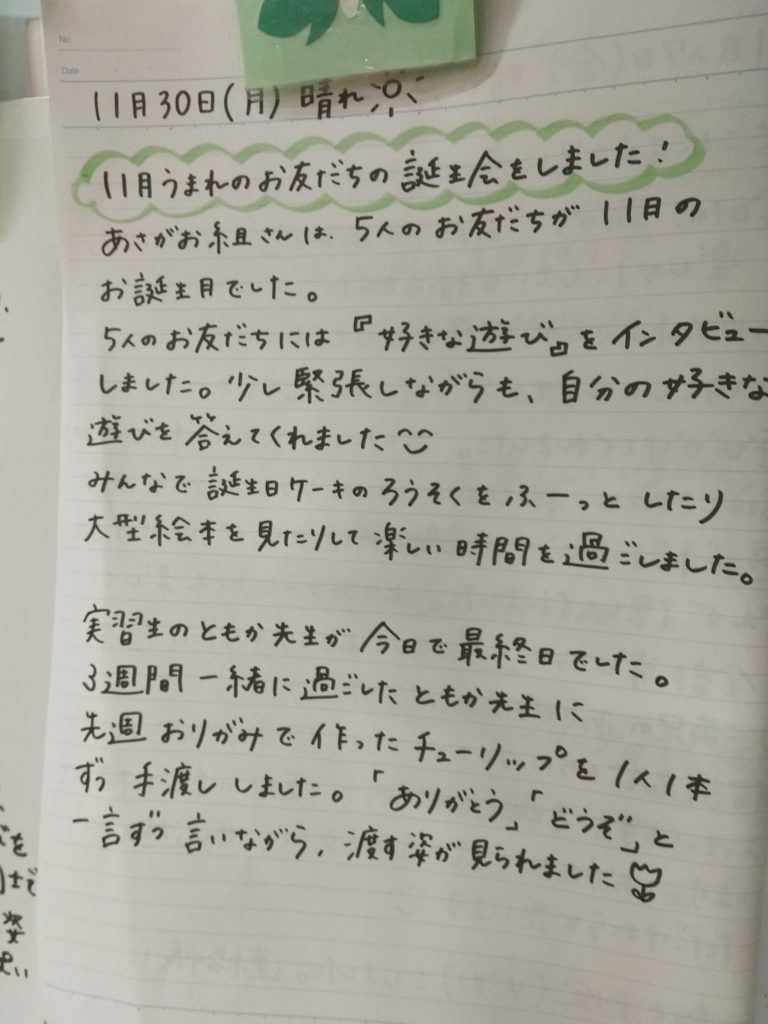 No.
Date
11月30日(月) 晴れ
11月うまれのお友だちの誕生会をしました！
あさがお組さんは、5人のお友だちが11月の
お誕生月でした。
5人のお友だちには『好きな遊び』をインタビュー
しました。少し緊張しながらも、自分の好きな
遊びを答えてくれました
みんなで誕生日ケーキのろうそくをふーっとしたり
大型絵本を見たりして楽しい時間を過ごしました。
実習生のともか先生が今日で最終日でした。
3週間一緒に過ごしたともか先生に
先週おりがみで作ったチューリップを1人1本
ずつ手渡ししました。「ありがとう」「どうぞ」と
一言ずつ言いながら、渡す姿が見られました